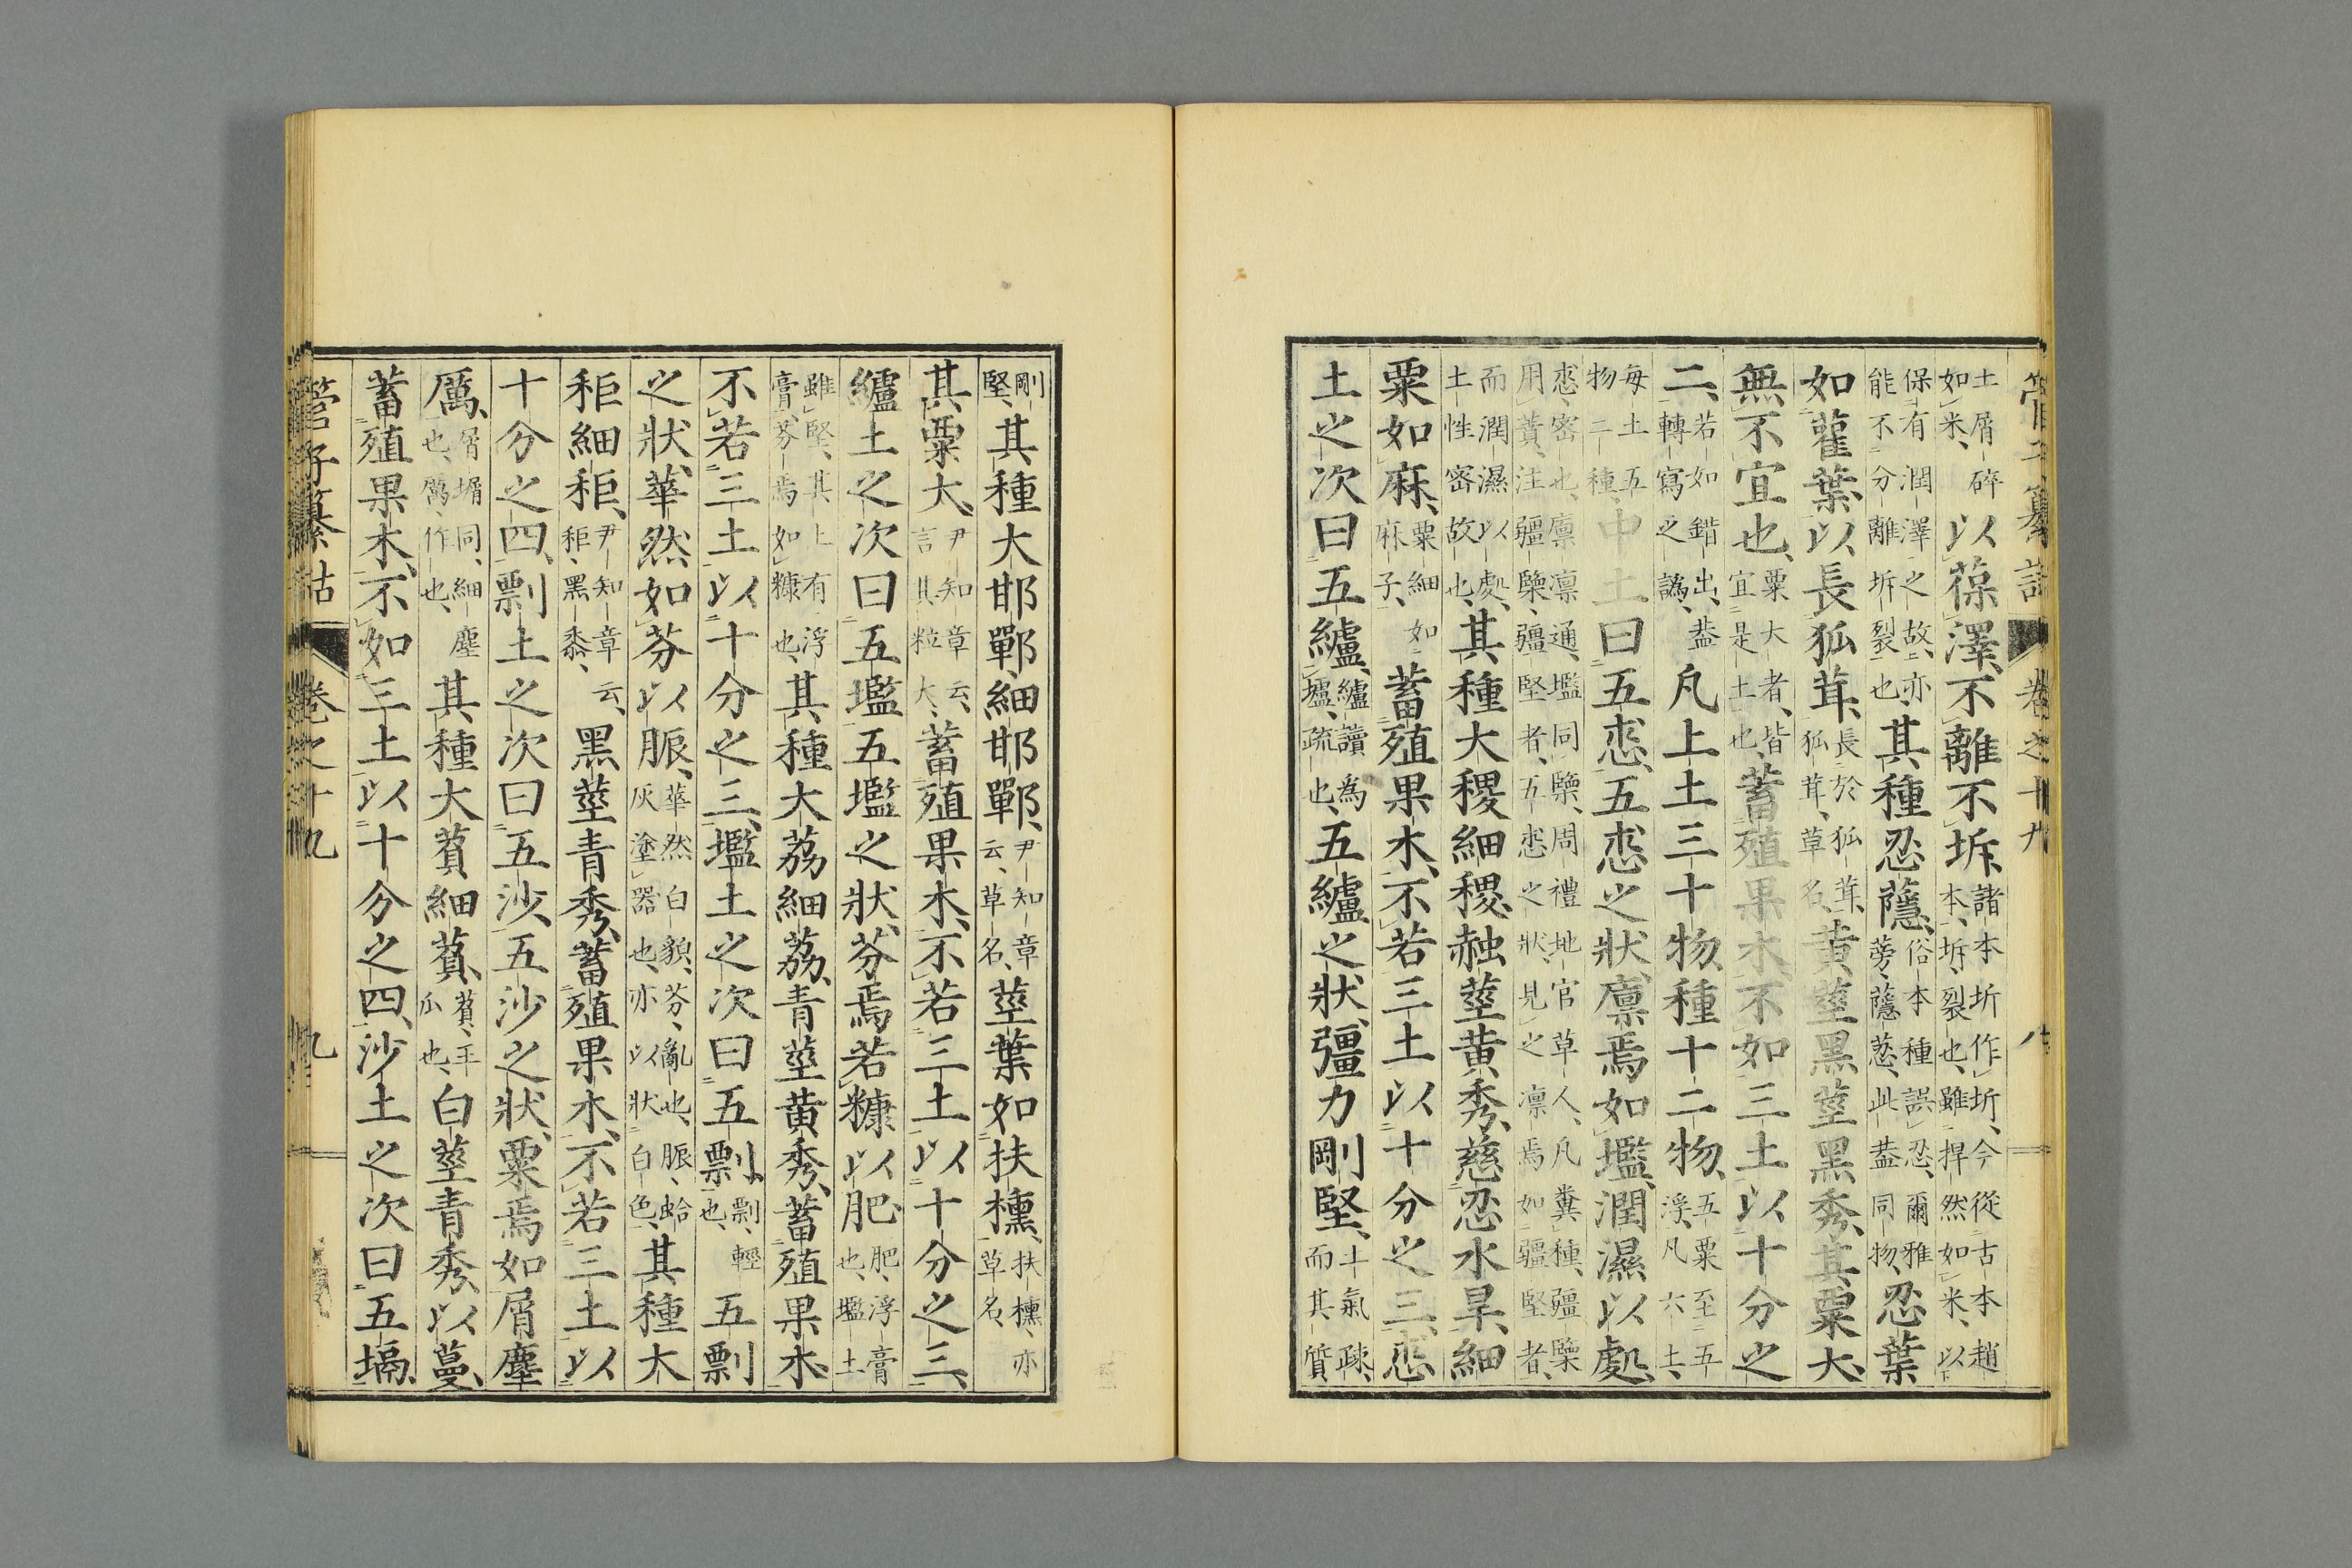 土屑碎如米、以葆澤、不離不坼、諸本圻作圻、今從古本趙本、坼、裂也、雖捍然如米、以下
保有潤澤之故、亦能不分離坼裂也、其種忍蘟、俗本種誤忍、爾雅蒡、蘟荵、此蓋同物、忍葉
如雚葉、以長狐茸、長於狐茸、狐茸、草名、黄莖黑莖黑秀、其粟大、
無不宜也、粟大者、皆宜是土也、蓄殖果木、不如三土以十分之
二、若如錯出、蓋轉寫之譌、凡上土三十物、種十二物、五粟至五浮、凡六土、
每土五物二種、中土曰五怷、五怷之狀、廪焉如壏、潤濕以處、
怷、密也、廪凛通、壏同㯺、周禮地官草人、凡糞種、彊㯺用蕡、注彊㯺、彊堅者、五怷之狀、見之凛焉如彊堅者、
而潤濕以處、土性密故也、其種大稷細稷、赨莖黄秀、慈忍水旱、細
粟如麻、粟細如麻子、蓄殖果木、不若三土以十分之三、怷
土之次曰五纑、纑讀為壚、疏也、五纑之狀、彊力剛堅、土氣疎、而其質
管子纂詁　卷之十九　八
剛堅、其種大邯鄲細邯鄲、尹知章云、草名、莖葉如扶櫄、扶櫄、亦草名、
其粟大、尹知章云、言其粒大、蓄殖果木、不若三土以十分之三、
纑土之次曰五壏、五壏之狀、芬焉若糠以肥、肥、浮膏也、壏土
雖堅、其上有浮膏、芬焉如糠也、其種大荔細荔、青莖黄秀、蓄殖果木、
不若三土以十分之三、壏土之次曰五剽、剽、輕也、五剽
之狀、華然如芬以脤、華然、白貌、芬、亂也、脤、蛤灰塗器也、亦以狀白色、其種大
秬細秬、尹知章云、秬、黑黍、黑莖青秀、蓄殖果木、不若三土以
十分之四、剽土之次曰五沙、五沙之狀、粟焉如屑塵
厲、屑塮同、細塵也、厲、作也、其種大萯細萯、萯、王瓜也、白莖青秀、以蔓、
蓄殖果木、不如三土以十分之四、沙土之次曰五塥、
管子纂詁　卷之十九　九